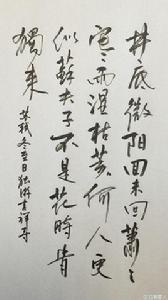 井底微阳回未回蕭〻
寒雨湿枯荄何人更
似蘇夫子不是花時肯
獨来
苏轼冬至日独游吉祥寺